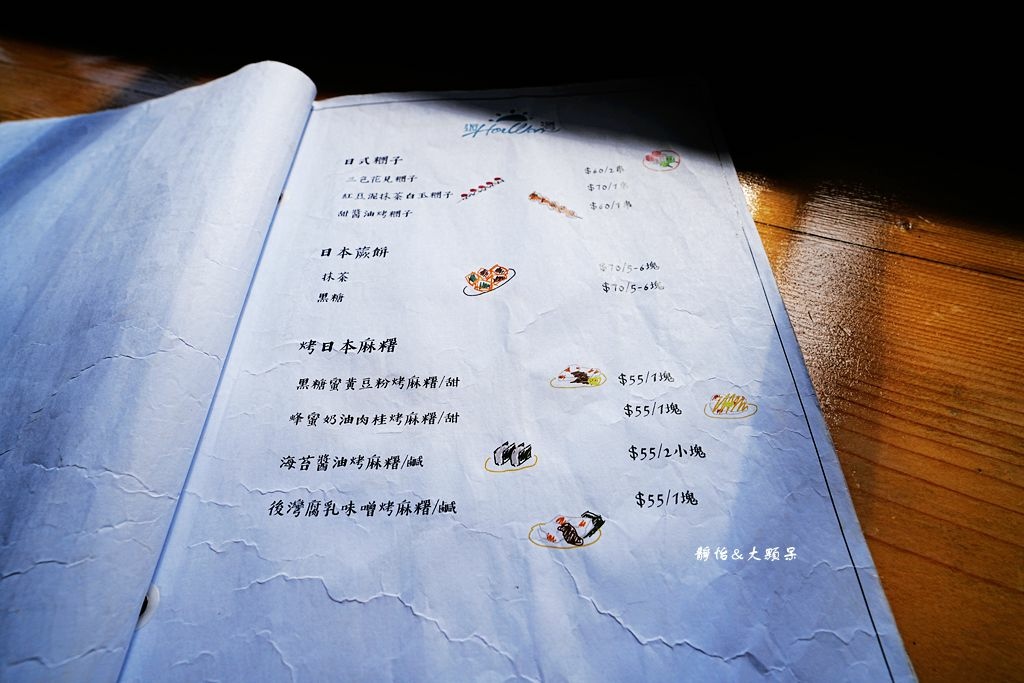 日式糰子
三色花見糰子 $60/2串
紅豆泥抹茶白玉糰子 $70/1串
甜醬油烤糰子 $60/1串
日本蕨餅
抹茶 $70/5-6塊
黑糖 $70/5-6塊
烤日本麻糬
黑糖蜜黃豆粉烤麻糬/甜 $55/1塊
蜂蜜奶油肉桂烤麻糬/甜 $55/1塊
海苔醬油烤麻糬/鹹 $55/2小塊
後灣腐乳味噌烤麻糬/鹹 $55/1塊
靜怡&大顆呆